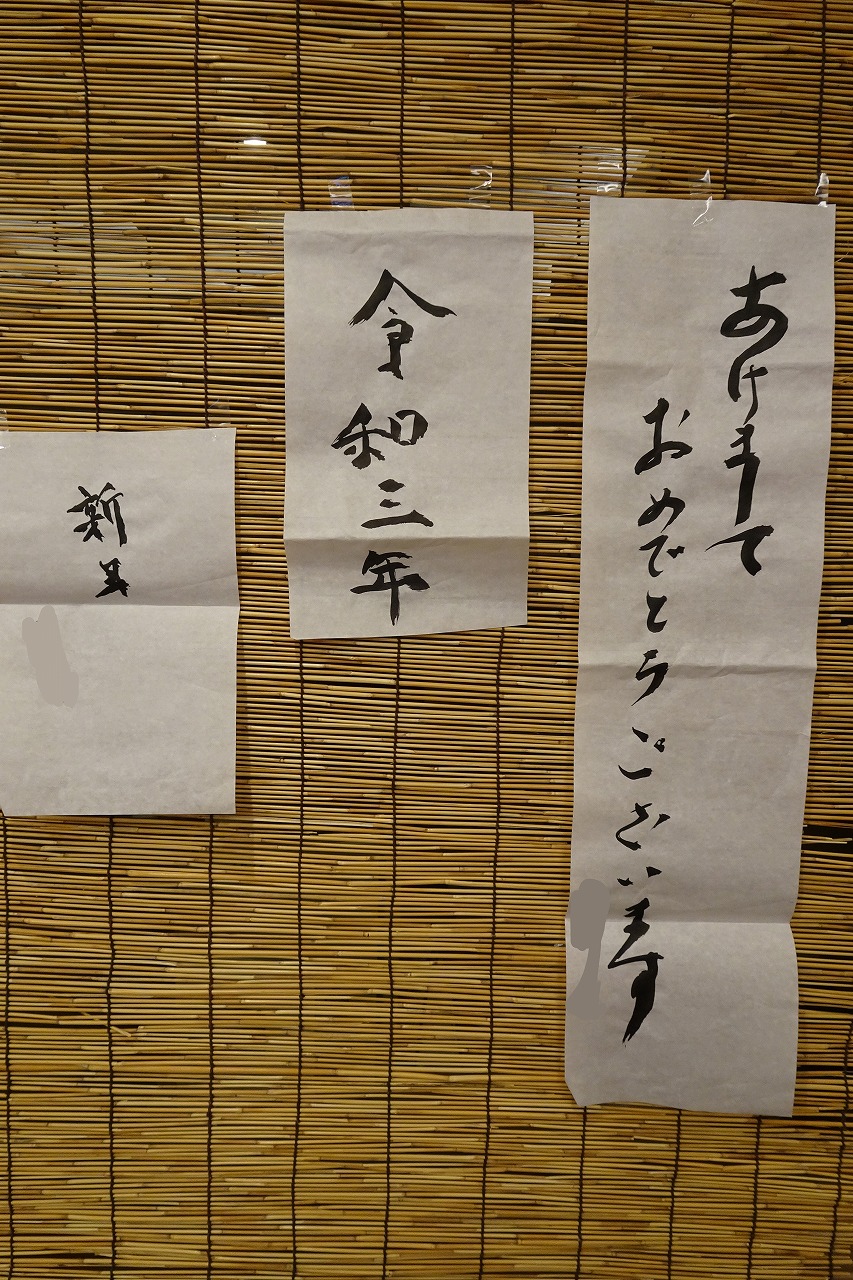 あけまして
おめでとうございます
令和三年
新